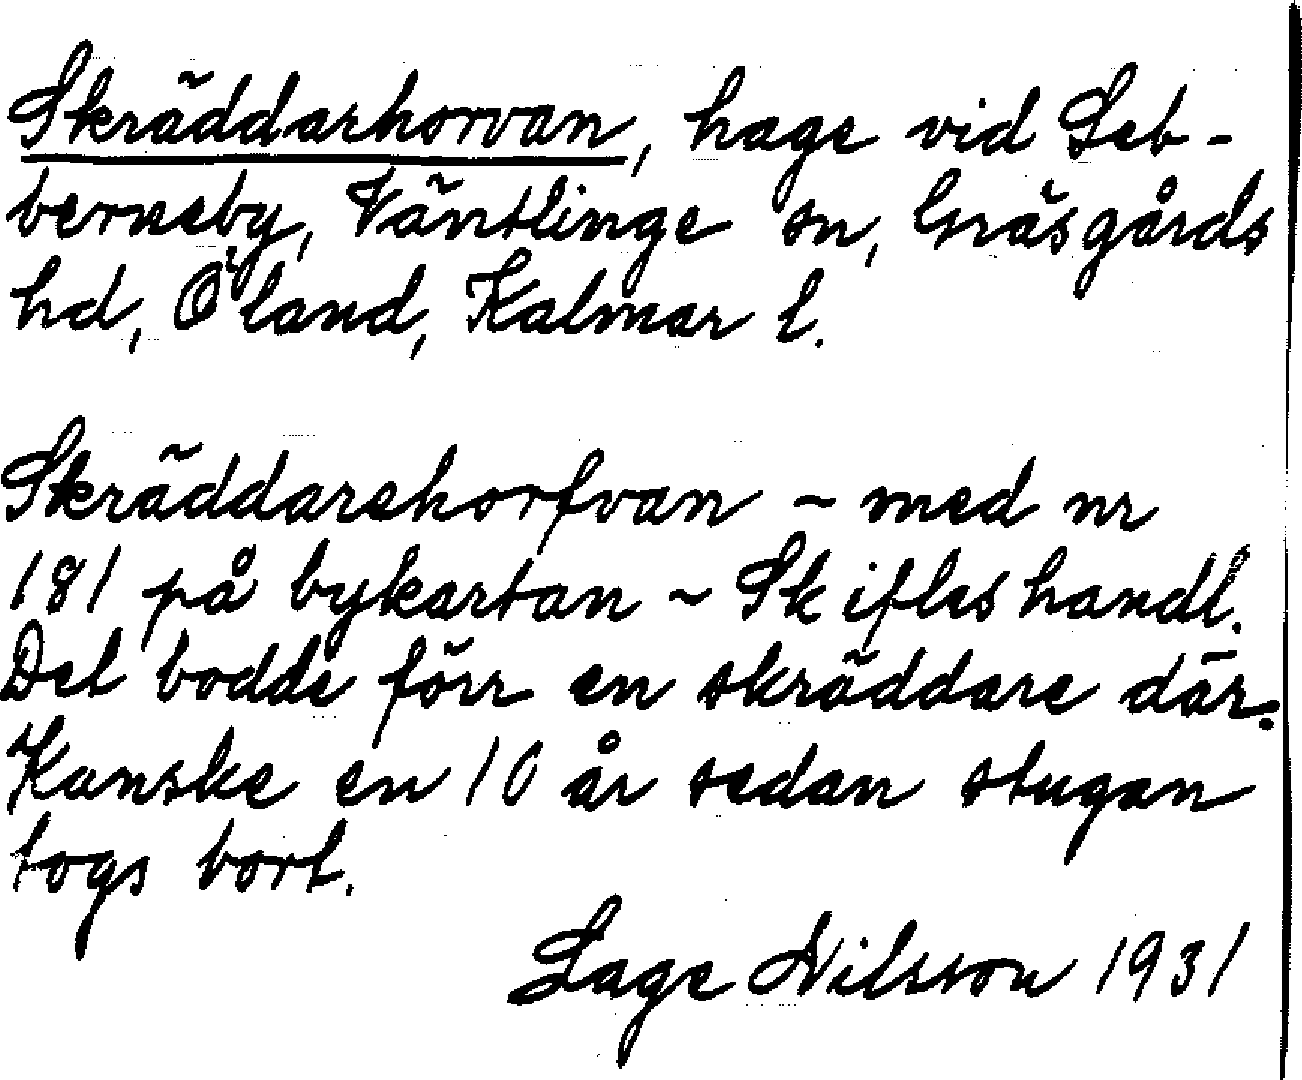 Skräddarhorvan, hage vid Seb-
berneby, Ventlinge sn, Gräsgårds
hd, Öland, Kalmar l.
Skräddarehorfvan ~ med nr
181 på bykartan ~ Skifteshandl.
Det bodde förr en skräddare där.
Kanske en 10 år sedan stugan
togs bort.
Lage Nilsson 1931